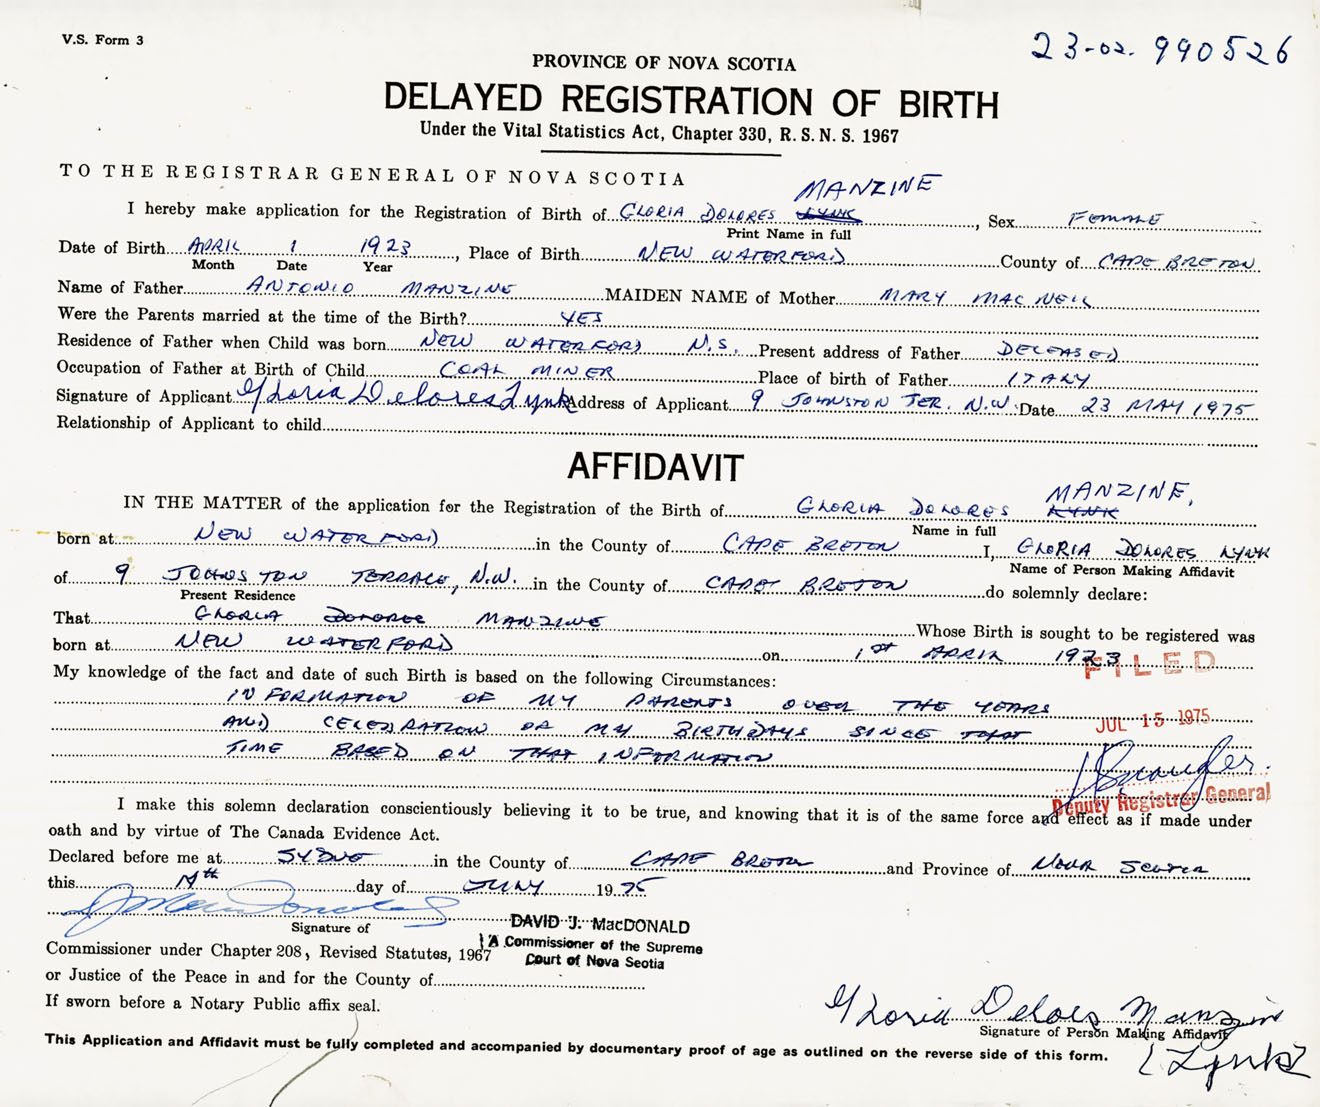 V.S. Form 3
23-02-990526
PROVINCE OF NOVA SCOTIA
DELAYED REGISTRATION OF BIRTH
Under the Vital Statistics Act, Chapter 330, R. S. N. S. 1967
TO THE REGISTRAR GENERAL OF NOVA SCOTIA
MANZINE
I hereby make application for the Registration of Birth of GLORIA DOLORES LYNK, Sex FEMALE
Print Name in full
Date of Birth APRIL 1 1923, Place of Birth NEW WATERFORD County of CAPE BRETON
Month Date Year
Name of Father ANTONIO MANZINE MAIDEN NAME of Mother MARY MAC NEIL
Were the Parents married at the time of the Birth? YES
Residence of Father when Child was born NEW WATERFORD N.S. Present address of Father DECEASED
Occupation of Father at Birth of Child COAL MINER Place of birth of Father ITALY
Signature of Applicant Gloria Delores Lynk Address of Applicant 9 JOHNSTON TER. N.W. Date 23 MAY 1975
Relationship of Applicant to child
AFFIDAVIT
MANZINE,
IN THE MATTER of the application for the Registration of the Birth of GLORIA DOLORES LYNK
Name in full
born at NEW WATERFORD in the County of CAPE BRETON I, GLORIA DOLORES LYNK
Name of Person Making Affidavit
of 9 JOHNSTON TERRACE, N.W. in the County of CAPE BRETON do solemnly declare:
Present Residence
That GLORIA DOLORES MANZINE Whose Birth is sought to be registered was
born at NEW WATERFORD on 1st APRIL 1923
FILED
My knowledge of the fact and date of such Birth is based on the following Circumstances:
INFORMATION OF MY PARENTS OVER THE YEARS
AND CELEBRATION OF MY BIRTHDAYS SINCE THAT
JUL 15 1975
TIME BASED ON THAT INFORMATION
Deputy Registrar General
I make this solemn declaration conscientiously believing it to be true, and knowing that it is of the same force and effect as if made under
oath and by virtue of The Canada Evidence Act.
Declared before me at SYDNEY in the County of CAPE BRETON and Province of NOVA SCOTIA
this day of JULY 1975
Signature of
DAVID J. MacDONALD
A Commissioner of the Supreme
Court of Nova Scotia
Commissioner under Chapter 208, Revised Statutes, 1967
or Justice of the Peace in and for the County of
If sworn before a Notary Public affix seal.
Gloria Delores Manzine
Signature of Person Making Affidavit
(Lynk)
This Application and Affidavit must be fully completed and accompanied by documentary proof of age as outlined on the reverse side of this form.